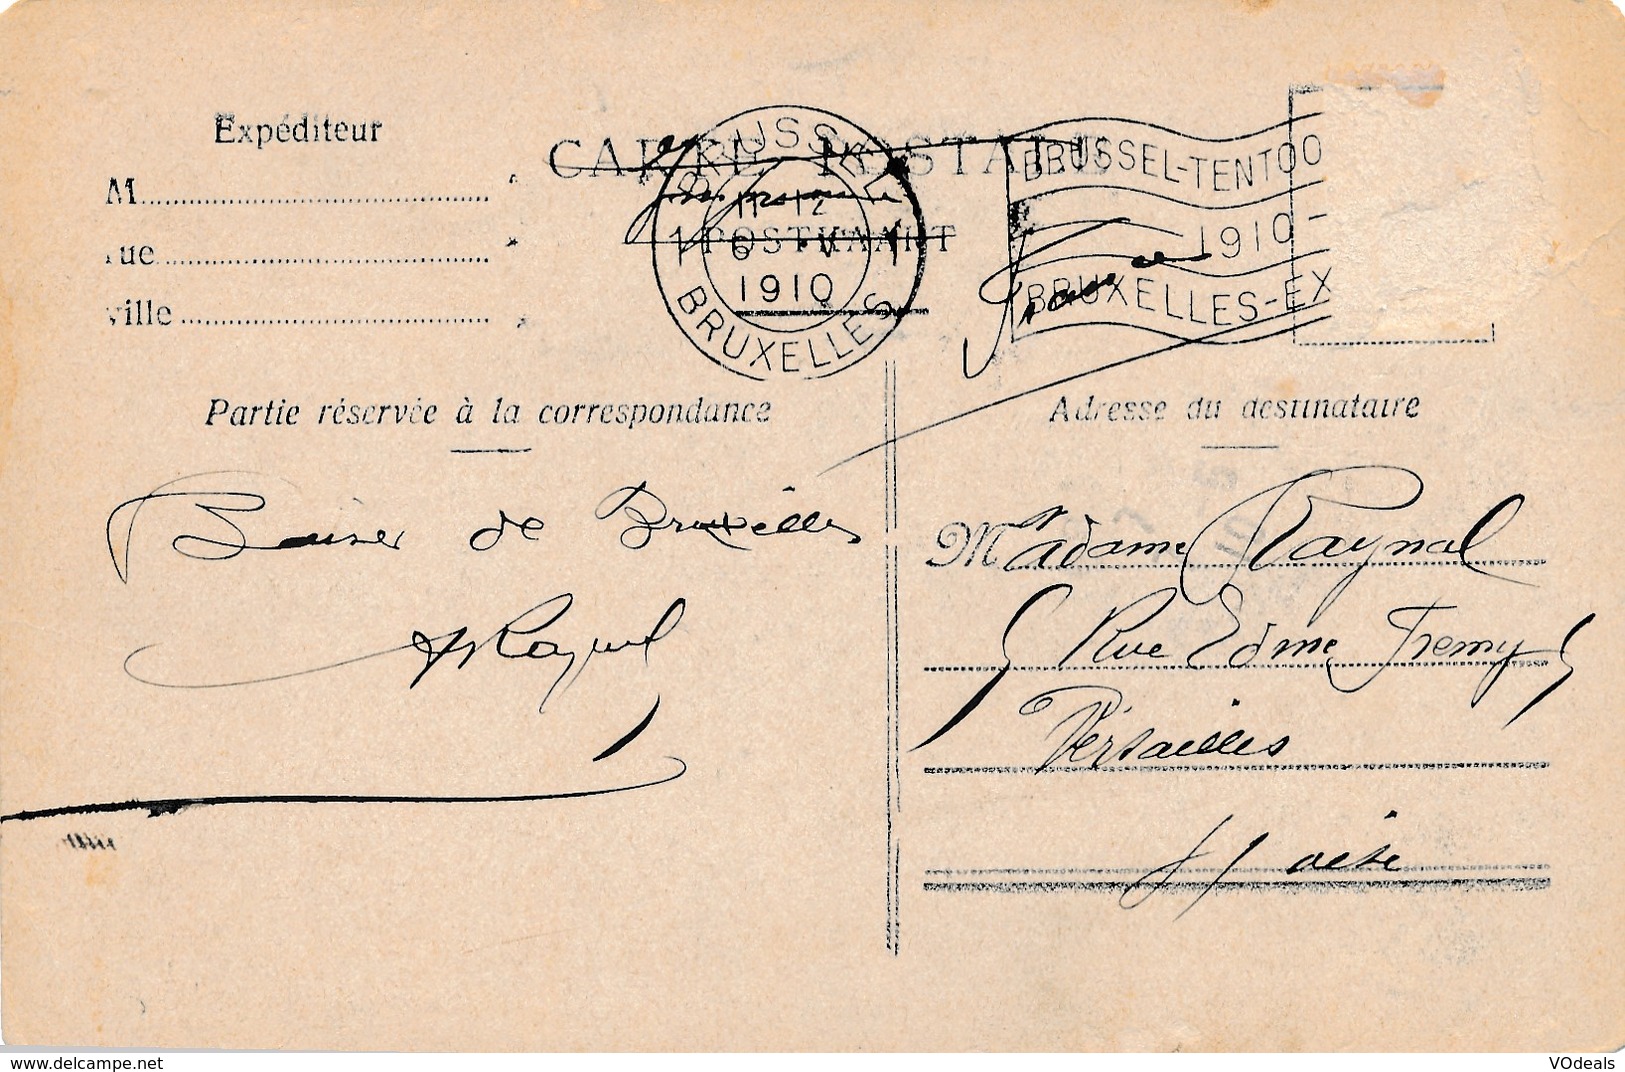 Expéditeur
M
rue
ville
CARTE POSTALE
POSTKAART
BRUSSEL
11-12
6 V
1910
BRUXELLES
BRUSSEL-TENTOO
1910-
BRUXELLES-EX
France
Partie réservée à la correspondance
Adresse du destinataire
Baiser de Bruxelles
Raynal
Madame Raynal
5 Rue Edme Fremy 5
Versailles
S/ Oise
www.delcampe.net
VOdeals